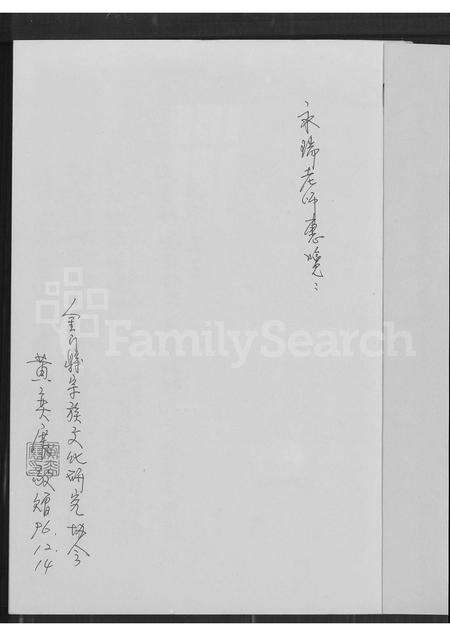 永瑞老師惠覽:
金門縣宗族文化研究協會
黃奕展敬贈
96.12.14
FamilySearch